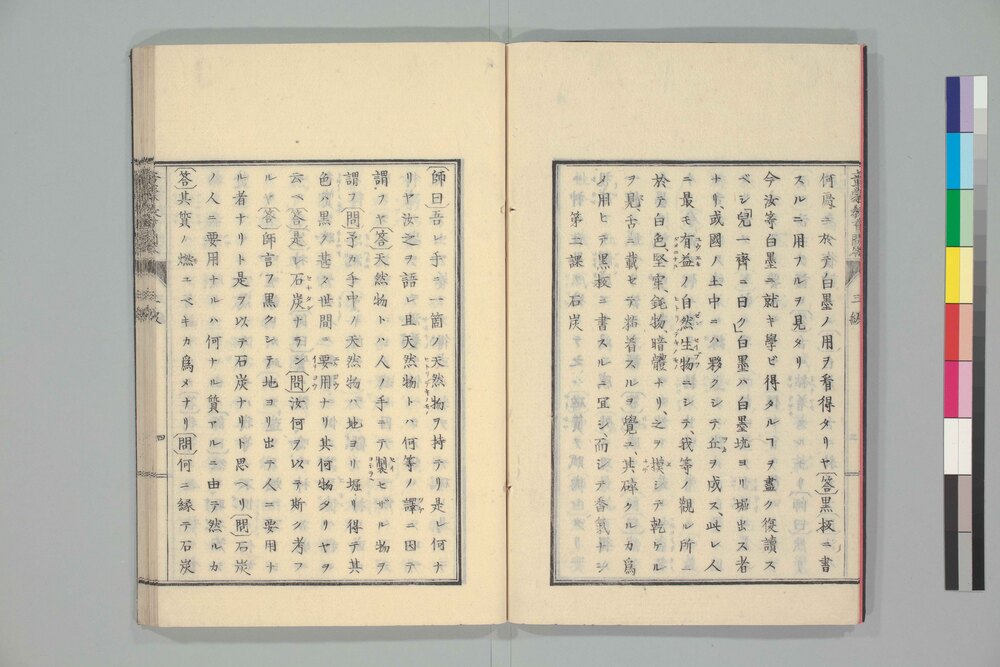 何處ニ於テ白墨ノ用ヲ看得タリヤ答黒板ニ書
スルニ用フルヲ見タリ
今汝等白墨ニ就キ學ビ得タルヿヲ盡ク復讀ス
ベシ兒一齊ニ曰ク白墨ハ白墨坑ヨリ堀出ス者
ナリ、或國ノ土中ニハ夥クシテ丘ヲ成ス、此レ人
ニ最モ有益ノ自然生物ニシテ、我等ノ觀ル所ニ
於テ白色、堅牢鈍物、暗體ナリ、之ヲ摸シテ乾ケル
ヲ見、舌ニ載セテ粘着スルヲ覺ユ、其碎クルカ爲
メ用ヒテ黒板ニ書スルニ宜シ、而シテ香氣ナシ
第三課 石炭
師曰吾レ手ニ一箇ノ天然物ヲ持テリ是レ何ナ
リヤ汝之ヲ語レ且天然物トハ何等ノ譯ニ因テ
謂フヤ答天然物トハ人ノ手ニテ製セザル物ヲ
謂フ問予カ手中ノ天然物ハ地ヨリ堀リ得テ其
色ハ黒ク甚タ世間ニ要用ナリ其何物タリヤヲ
云ヘ答是レ石炭ナラン問汝何ヲ以テ斯ク考フ
ルヤ答師言フ黒クシテ地ヨリ出テ人ニ要用ナ
ル者ナリト是ヲ以テ石炭ナリト思ヘリ問石炭
ノ人ニ要用ナルハ何ナル質アルニ由テ然ルカ
答其質ノ燃ユベキカ爲メナリ問何ニ縁テ石炭
四